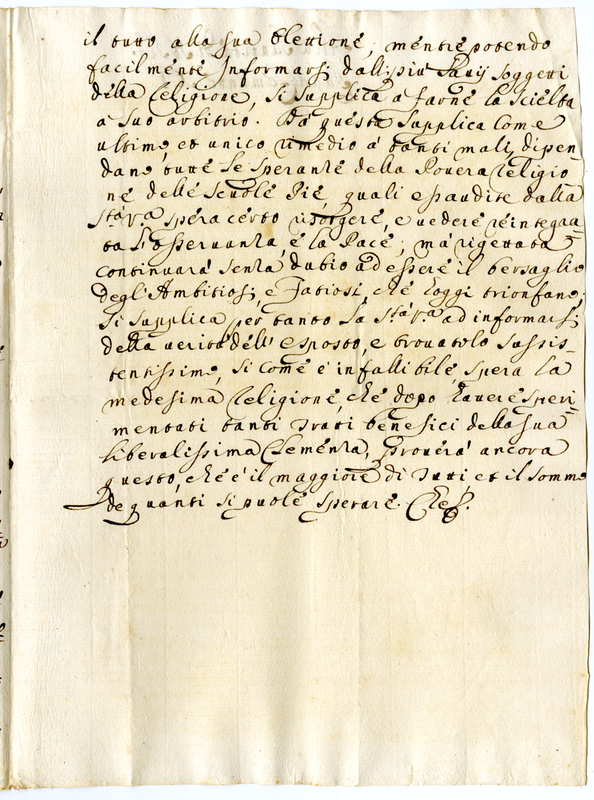 il tutto alla sua elettione; mentre potendo
facilmente Informarsi dalli più Savij Soggetti
della Religione, Si Supplica a farne la Scielta
a Suo arbitrio. Da questa Supplica Come
ultimo, et unico rimedio a tanti mali, dipen-
dano tutte le Speranze della Povera Religio
ne delle Scuole Pie, quali esaudite dalla
Stà vrà spera certo risorgere, e vedere reintegra-
ta l'osservanza, e la Pace; ma rigettata
continuarà senza dubio ad essere il bersaglio
degl'Ambitiosi, e Fatiosi, che hoggi trionfano,
Si Supplica per tanto la Stà vrà ad informarsi
della verità dell'esposto, e trovatolo Sussis-
tentissimo, si come è infallibile, spera la
medesima Religione, che dopo havere speri-
mentati tanti tratti benefici della sua
liberalissima Clemenza, proverà ancora
questo, che è il maggiore di tutti et il Sommo
de quanti si puole sperare. Che &.